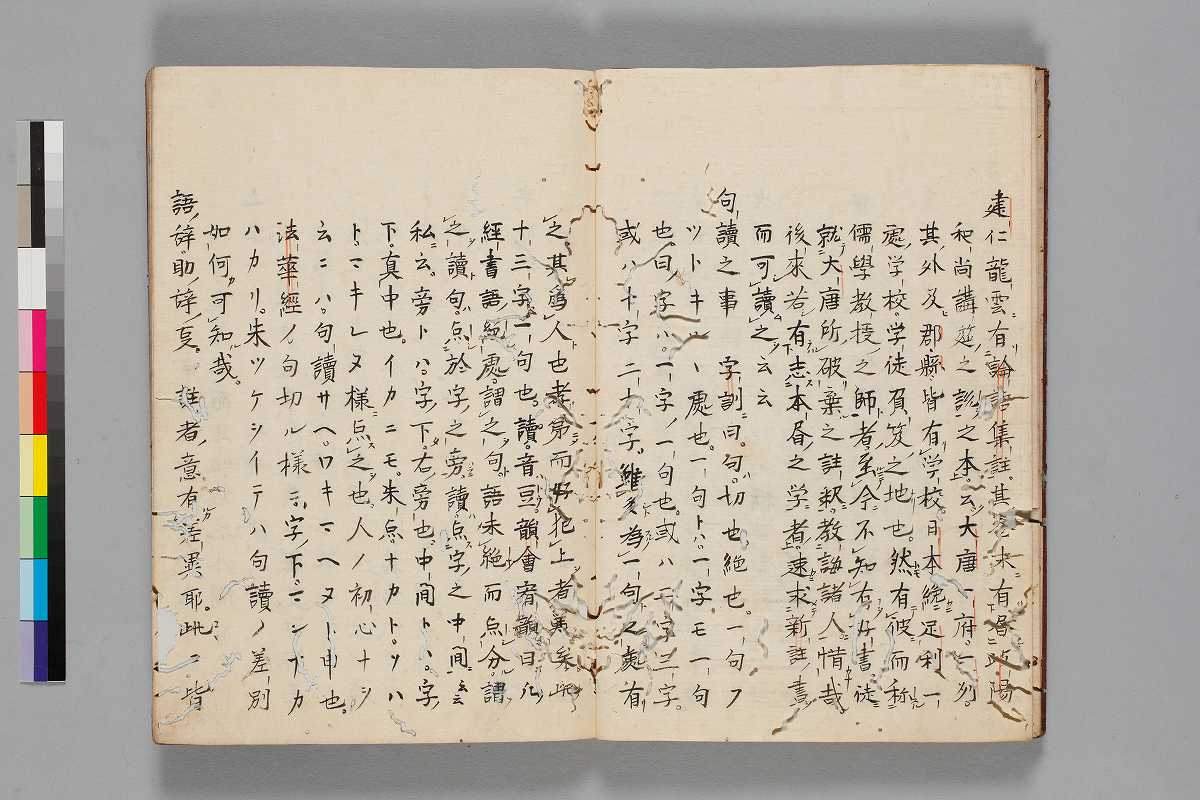 建仁龍雲有論語集註其巻末有昌岐陽
和尚講莚之談之本云大唐一府一列
其外及郡縣皆有学校日本纔足利一
處学校学徒負笈之地也然有彼而称
儒學教授之師者至今不知有好書徒
就大唐所破棄之註釈教誨諸人惜哉
後來若有志本之学者速求新註書
而可讀之云云
句讀之事 字訓曰句切也絶也一句ノ
ツトキレヽ處也一句トハ一字モ一句
也曰字ハ一字ノ一句也或ハ二字三字
或ハ十字二十字雖多為一句之處有
之其為人也孝弟而好犯上者者
十三字一句也讀音豆韻會宥韻曰凡
經書語絶處謂之句語未絶而点分謂
之讀句点於字之旁讀点字之中間云云
私云旁トハ字ノ下右ノ旁也中間トハ字ノ
下真中也イカニモ朱点ナカトツハ
トマキレヌ様点之也人ノ初心ナシ
云ニハ句讀サヘワキマヘヌト申也
法華經ノ句切ル様ニ字ノ下ニ
ハカリ朱ツケシイテハ句讀ノ差別
如何可知哉
語辞助辞夏 誰者意有差異耶此二皆